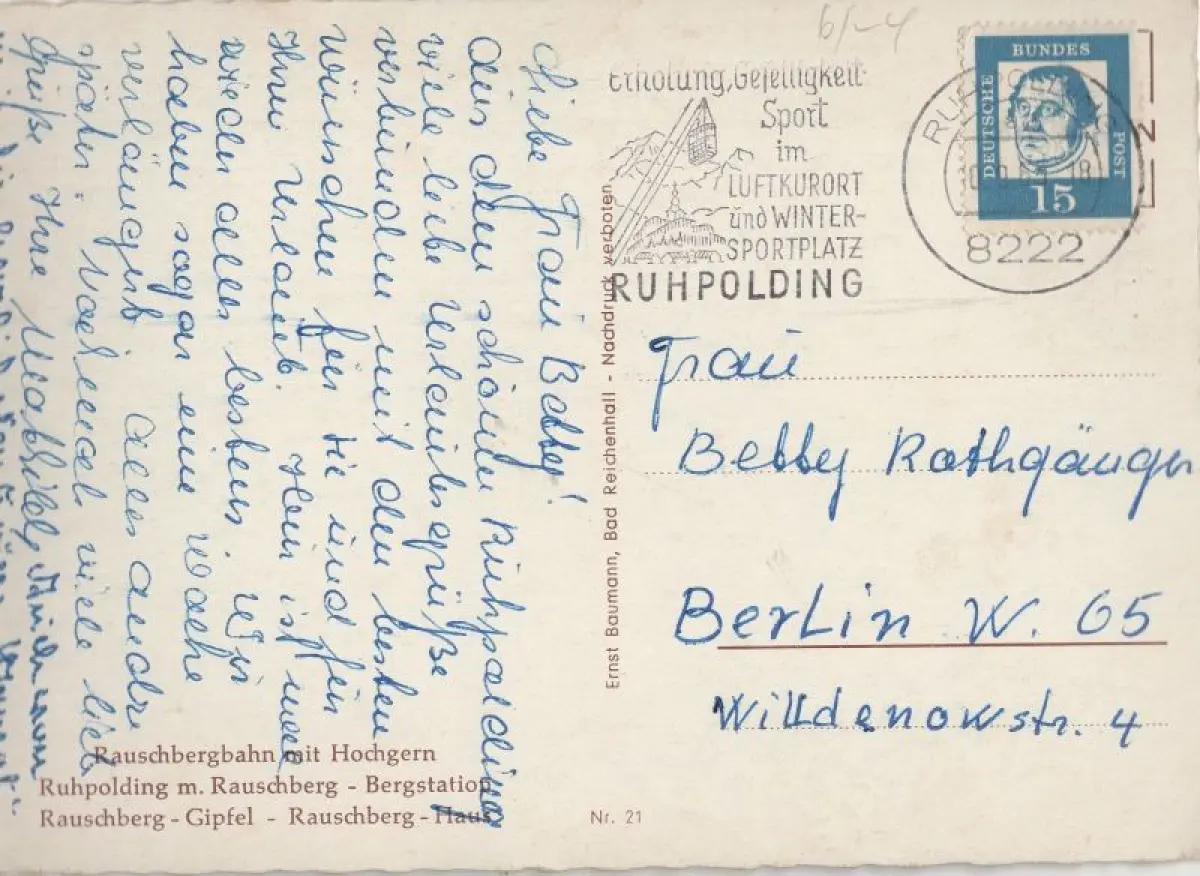 Liebe Frau Betty!
Aus dem schönen Ruhpolding
viele liebe Urlaubsgrüße
verbunden mit den besten
Wünschen für Sie und für
Ihren Urlaub. Hier ist
wieder alles bestens. Wir
haben sogar eine Woche
verlängert. Alles andre
später. Nochmal viele liebe
Grüße Ihre
Rauschbergbahn mit Hochgern
Ruhpolding m. Rauschberg - Bergstation
Rauschberg - Gipfel - Rauschberg - Haus
Ernst Baumann, Bad Reichenhall - Nachdruck verboten
Nr. 21
Erholung, Geselligkeit
Sport
im
LUFTKURORT
und WINTER-
SPORTPLATZ
RUHPOLDING
DEUTSCHE
BUNDES
POST
15
8222
Frau
Betty Rathgänger
Berlin W. 65
Willdenowstr. 4